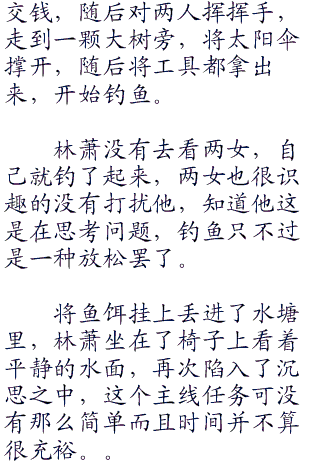 交钱，随后对两人挥挥手，
走到一颗大树旁，将太阳伞
撑开，随后将工具都拿出
来，开始钓鱼。
林萧没有去看两女，自
己就钓了起来，两女也很识
趣的没有打扰他，知道他这
是在思考问题，钓鱼只不过
是一种放松罢了。
将鱼饵挂上丢进了水塘
里，林萧坐在了椅子上看着
平静的水面，再次陷入了沉
思之中，这个主线任务可没
有那么简单而且时间并不算
很充裕。。